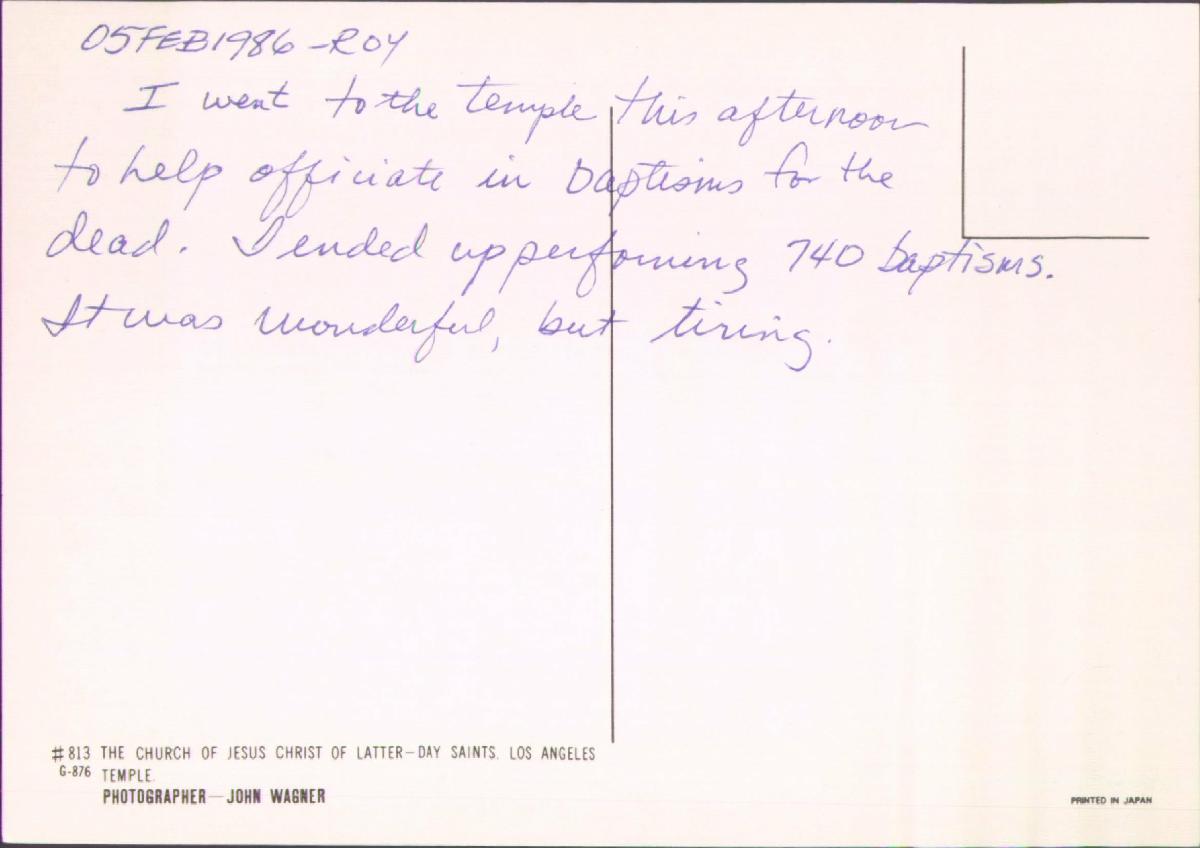 05FEB1986-ROY
I went to the temple this afternoon
to help officiate in baptisms for the
dead. I ended up perfoming 740 baptisms.
It was wonderful, but tiring.
#813 THE CHURCH OF JESUS CHRIST OF LATTER-DAY SAINTS. LOS ANGELES
G-876 TEMPLE.
PHOTOGRAPHER-JOHN WAGNER
PRINTED IN JAPAN